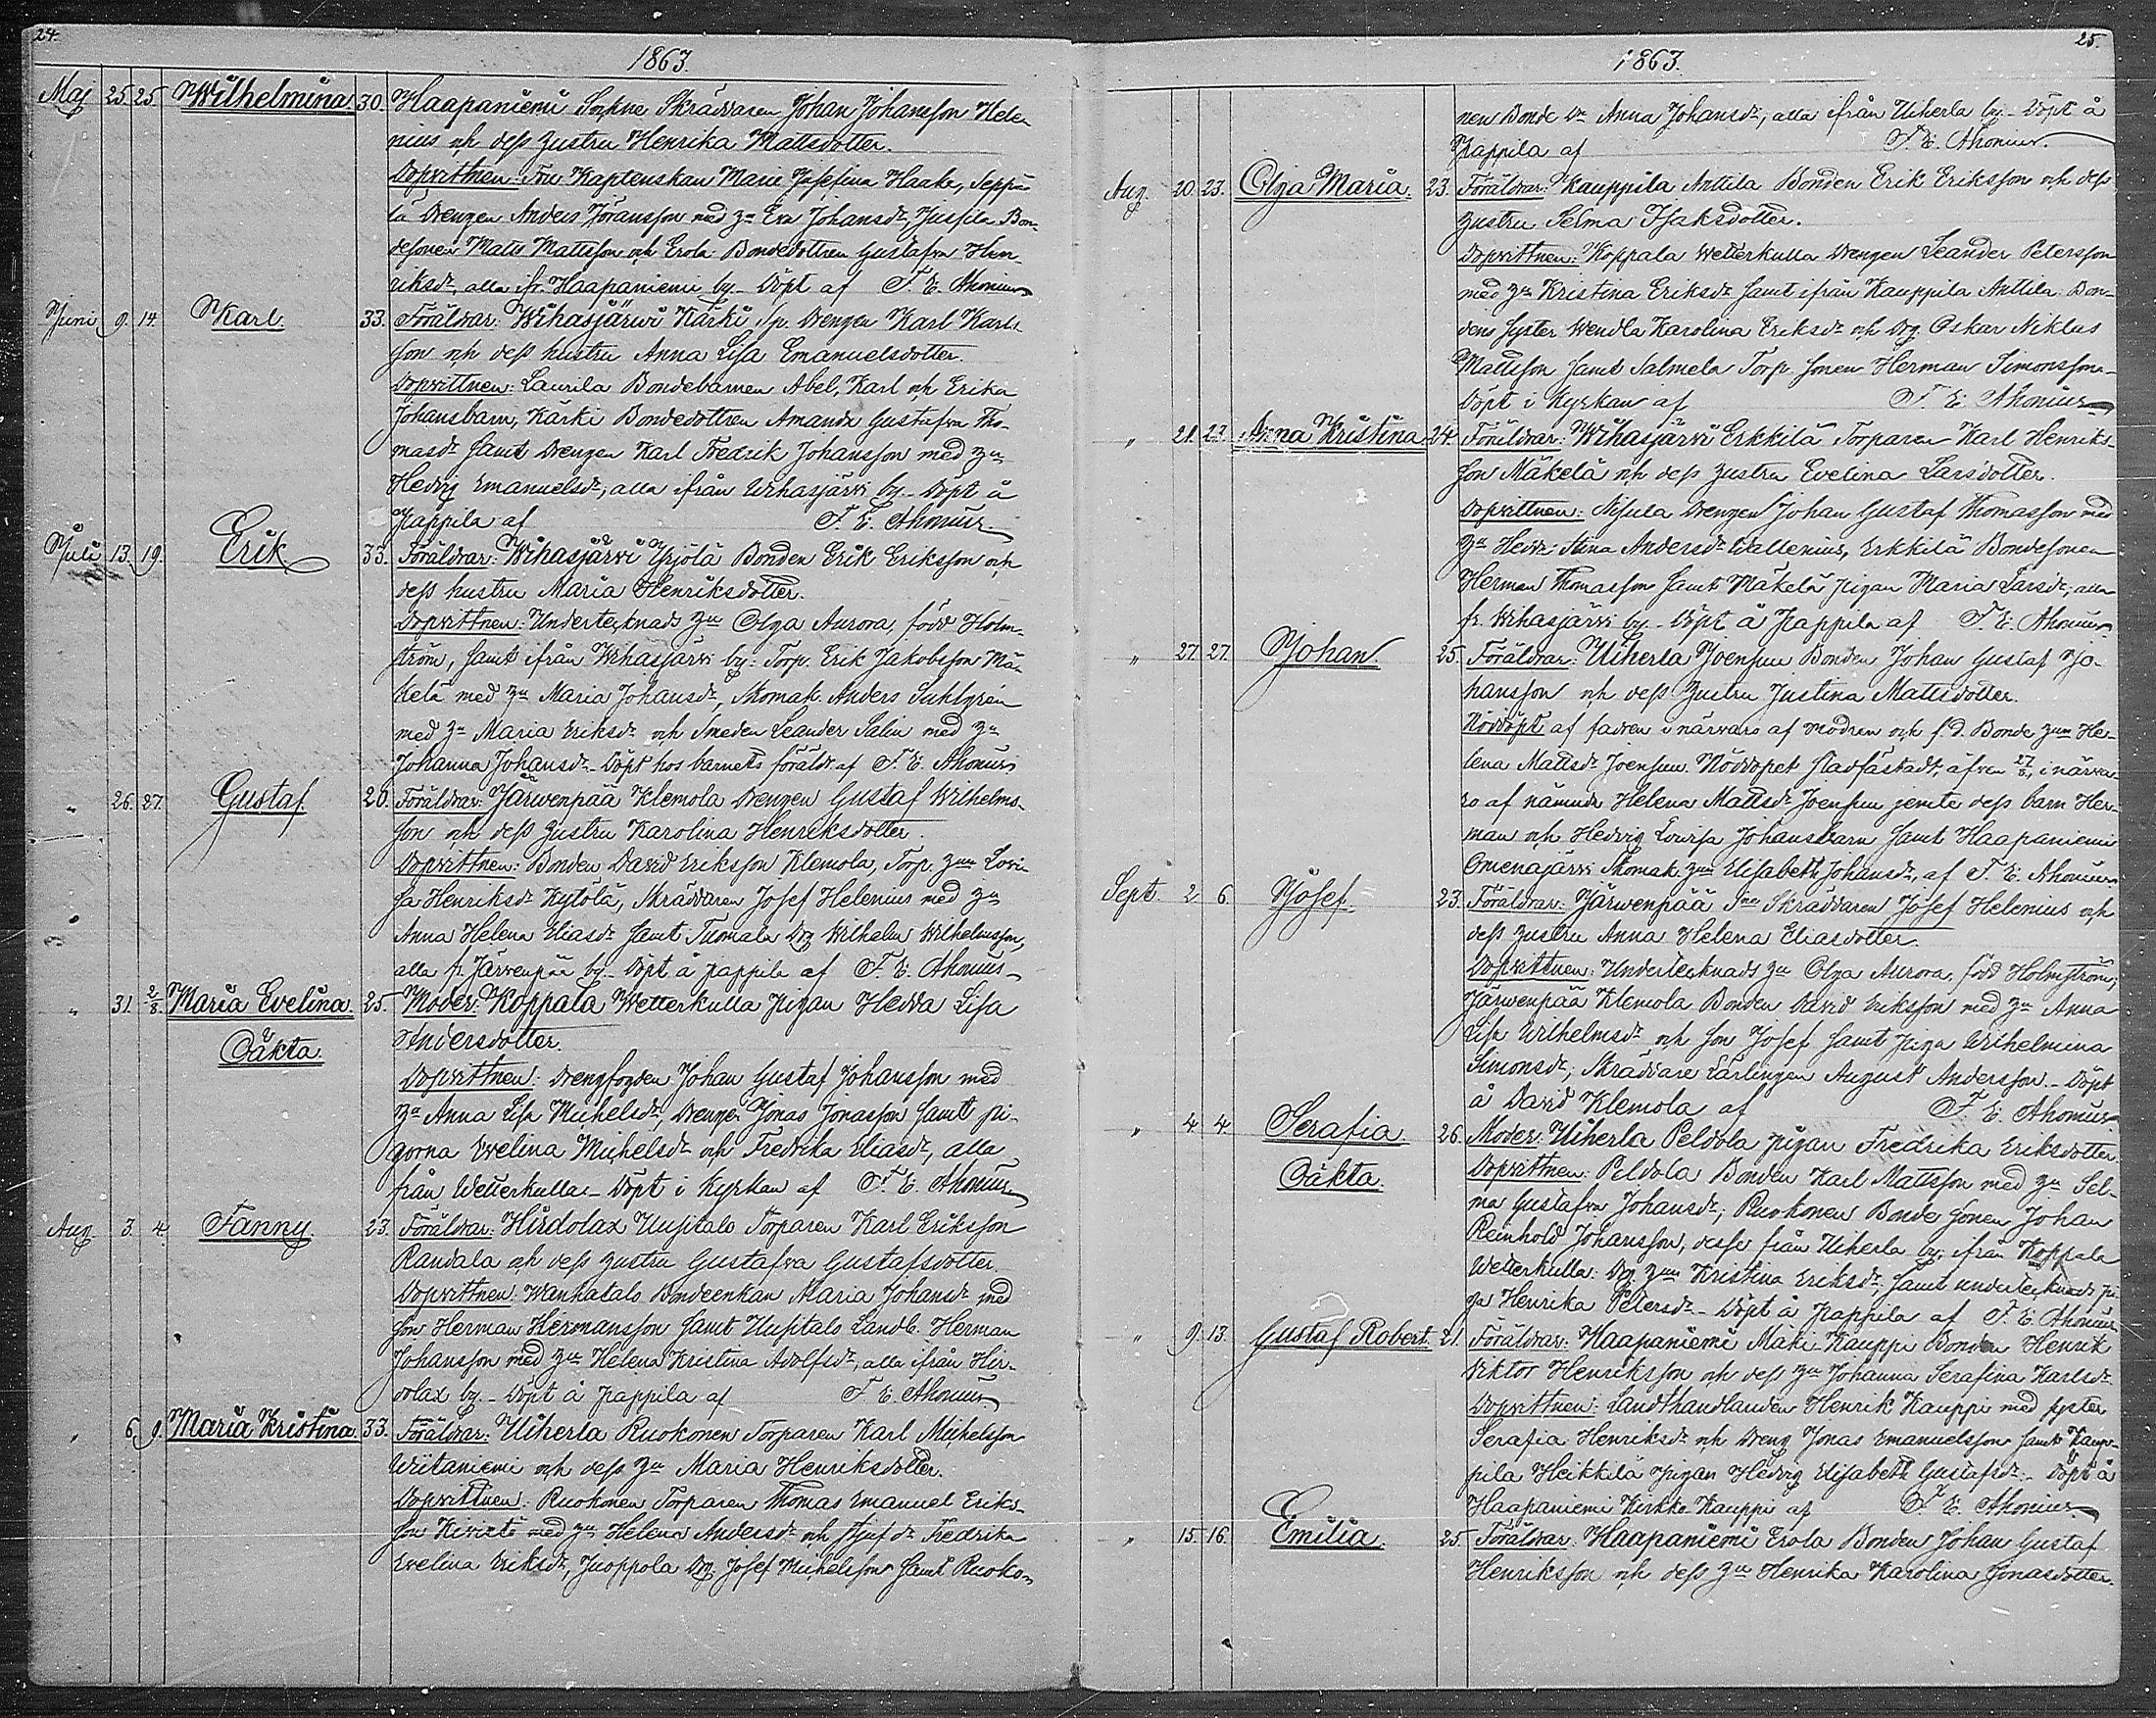 24.
1863.
Maj 25. 25 Wilhelmina 30. Haapaniemi Sockne Skräddaren Johan Johansson Hele-
nius och dess hustru Henrika Mattsdotter.
Dopvittnen: Fru Kaptenskan Marie Josefina Haake, Seppä-
lä Drengen Anders Jöransson med hu Eva Johansdr, Jussila Bon-
desonen Matts Mattsson och Erola Bondedottren Gustafva Hen-
riksdr, alla fr. Haapaniemi by. Döpt af F. E. Ahonius
Juni 9. 14. Karl. 33. Föräldrar: Wihasjärwi Kärki Sp. Drengen Karl Karls-
son och dess hustru Anna Lisa Emanuelsdotter.
Dopvittnen: Laurila Bondebarnen Abel, Karl och Erika
Johansbarn, Kärki Bondedottren Amanda Gustafva Tho-
masdr samt Drengen Karl Fredrik Johansson med hu
Hedvig Emanuelsdr, alla ifrån Wihasjärvi by. Döpt å
Pappila af F. E. Ahonius.
Juli 13. 19. Erik 33. Föräldrar: Wihasjärwi Yrjölä Bonden Erik Eriksson och
dess hustru Maria Henriksdotter.
Dopvittnen: Undertecknads hu Olga Aurora, född Holm-
ström, samt ifrån Wihasjärvi by: Torp. Erik Jakobsson Mä-
kelä med hu Maria Johansdr, Skomak. Anders Suhlgrén
med hu Maria Eriksdr och Smeden Leander Salin med hu
Johanna Johansdr. Döpt hos barnets föräldr. af F. E. Ahonius
" 26. 27. Gustaf 20. Föräldrar: Järwenpää Klemola Drengen Gustaf Wilhelms-
son och dess hustru Karolina Henriksdotter.
Dopvittnen: Bonden David Eriksson Klemola, Torp. hun Lovi-
sa Henriksdr Kytölä, Skräddaren Josef Helenius med hu
Anna Helena Eliasdr samt Tuomala Drg Wilhelm Wilhelmsson,
alla fr. Järvenpää by. Döpt å pappila af F. E. Ahonius
" 31. 2/8. Maria Evelina. 25. Moder: Koppala Wetterkulla pigan Hedda Lisa
Oäkta. Andersdotter.
Dopvittnen: Drengfogden Johan Gustaf Johansson med
hu Anna Lisa Michelsdr, Drengen Jonas Jonasson samt pi-
gorna Evelina Michelsdr och Fredrika Eliasdr, alla
från Wetterkulla. Döpt i Kyrkan af F. E. Ahonius
Aug. 3. 4. Fanny. 23. Föräldrar: Hirdolax Uusitalo Torparen Karl Eriksson
Randala och dess hustru Gustafva Gustafsdotter.
Dopvittnen: Wanhatalo Bondeenkan Maria Johansdr med
son Herman Hermansson samt Uusitalo Landb. Herman
Johansson med hu Helena Kristina Adolfsdr, alla ifrån Hir-
dolax by. Döpt å pappila af F. E. Ahonius
" 6. 9. Maria Kristina. 33. Föräldrar: Uiherla Ruokonen Torparen Karl Michelsson
Wiitaniemi och dess hu Maria Henriksdotter.
Dopvittnen: Ruokonen Torparen Thomas Emanuel Eriks-
son med hu Helena Andersdr och Fredrika
Evelina Eriksdr, Juoppola Drg. Josef Michelsson samt Ruoko-
25.
1863.
nen Bonde Dr Anna Johansdr, alla ifrån Uiherla by. Döpt å
Pappila af F. E. Ahonius.
Aug. 20. 23. Olga Maria. 23. Föräldrar: Kauppila Anttila Bonden Erik Eriksson och dess
hustru Selma Isaksdotter.
Dopvittnen: Koppala Wetterkulla Drengen Leander Petersson
med hu Kristina Eriksdr samt ifrån Kauppila Anttila: Bon-
dens syster Wendla Karolina Eriksdr och Drg. Oskar Niklas
Mattsson samt Salmela Torp. sonen Herman Simonsson.
Döpt i Kyrkan af F. E. Ahonius
" 21. 23. Anna Kristina 24. Föräldrar: Wihasjärvi Erkkilä Torparen Karl Henriks-
son Mäkelä och dess hustru Evelina Larsdotter.
Dopvittnen: Nisula Drengen Johan Gustaf Thomasson med
hu Hedv: Stina Andersdr Wallenius, Erkkilä Bondesonen
Herman Thomasson samt Mäkelä pigan Maria Larsdr, alla
fr. Wihasjärvi by. Döpt å Pappila af F. E. Ahonius
" 27. 27. Johan 25. Föräldrar: Uiherla Joensuu Bonden Johan Gustaf Jo-
hansson och dess hustru Justina Mattsdotter.
Nöddöpt af fadren i närvaro af modren och f.d. Bonde hun He-
lena Mattsdr Joensuu. Nöddopet stadfästadt, äfven 27/8, i närva-
ro af nämnda Helena Mattsdr Joensuu jemte dess barn Her-
man och Hedvig Lovisa Johansbarn samt Haapaniemi
Omenajärvi Skomak. hun Elisabeth Johansdr, af F. E. Ahonius
Sept. 2 6. Josef 23. Föräldrar: Järwenpää Skräddaren Josef Helenius och
dess hustru Anna Helena Eliasdotter.
Dopvittnen: Undertecknads hu Olga Aurora, född Holmström,
Järwenpää Klemola Bonden David Eriksson med hu Anna
Lisa Wilhelmsdr och son Josef samt piga Wilhelmina
Simonsdr; Skräddare Lärlingen August Andersson. Döpt
å David Klemola af F. E. Ahonius
" 4 4. Serafia 26. Moder: Uiherla Peldola pigan Fredrika Eriksdotter.
Oäkta. Dopvittnen: Peldola Bonden Karl Mattsson med hu Sel-
ma Gustafva Johansdr; Ruokonen Bonde sonen Johan
Reinhold Johansson, desse från Uiherla by; ifrån Koppala
Wetterkulla: Drg. hun Kristina Eriksdr, samt undertecknads pi-
ga Henrika Petersdr. Döpt å pappila af F. E. Ahonius
" 9. 13. Gustaf Robert. 21. Föräldrar: Haapaniemi Mäki-Kauppi Bonden Henrik
Viktor Henriksson och dess hu Johanna Serafina Karlsdr.
Dopvittnen: Landthandlanden Henrik Kauppi med syster
Serafia Henriksdr och Dreng Jonas Emanuelsson samt Kaup-
pila Heikkilä pigan Hedvig Elisabeth Gustafsdr. Döpt å
Haapaniemi Kirkko Kauppi af F. E. Ahonius
" 15. 16. Emilia. 25. Föräldrar: Haapaniemi Erola Bonden Johan Gustaf
Henriksson och dess hu Henrika Karolina Jonasdotter.